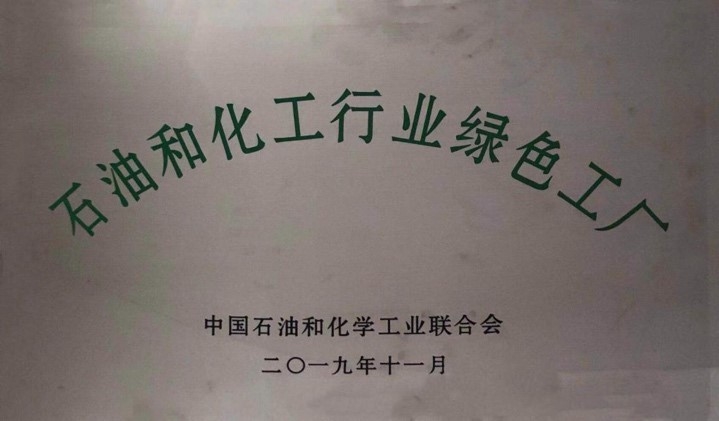 石油和化工行业绿色工厂
中国石油和化学工业联合会
二〇一九年十一月